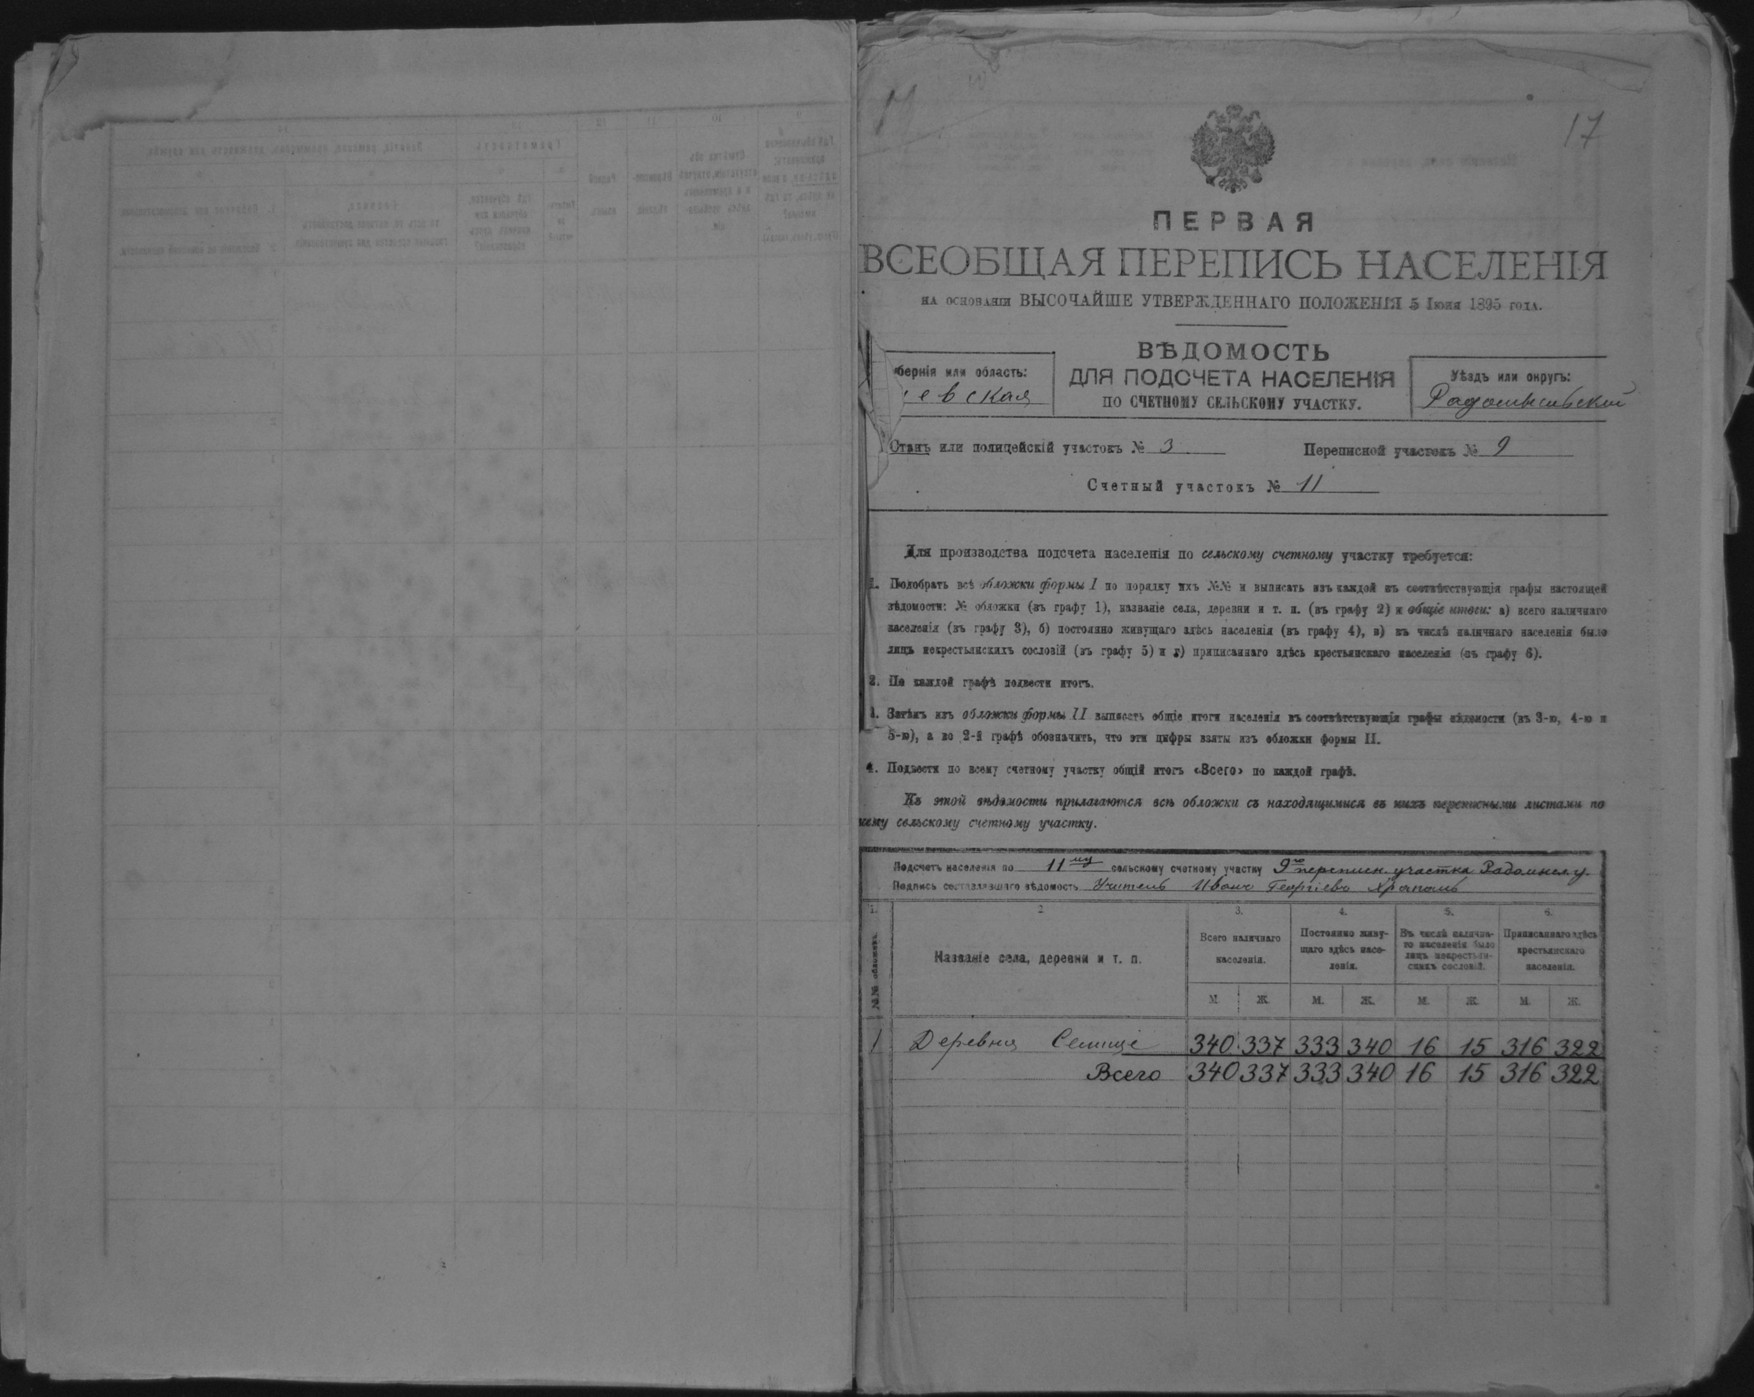 17
ПЕРВАЯ
ВСЕОБЩАЯ ПЕРЕПИСЬ НАСЕЛЕНІЯ
НА ОСНОВАНІИ ВЫСОЧАЙШЕ УТВЕРЖДЕННАГО ПОЛОЖЕНІЯ 5 Іюня 1895 года.
ВѢДОМОСТЬ
ДЛЯ ПОДСЧЕТА НАСЕЛЕНІЯ
ПО СЧЕТНОМУ СЕЛЬСКОМУ УЧАСТКУ.
бернія или область:
евская
Уѣздъ или округъ:
Радомысльскій
Станъ или полицейскій участокъ № 3
Переписной участокъ № 9
Счетный участокъ № 11
Для производства подсчета населенія по сельскому счетному участку требуется:
1. Подобрать всѣ обложки формы I по порядку ихъ №№ и выписать изъ каждой въ соотвѣтствующія графы настоящей
вѣдомости: № обложки (въ графу 1), названіе села, деревни и т. п. (въ графу 2) и общіе итоги: а) всего наличнаго
населенія (въ графу 3), б) постоянно живущаго здѣсь населенія (въ графу 4), в) въ числѣ наличнаго населенія было
лицъ некрестьянскихъ сословій (въ графу 5) и г) приписаннаго здѣсь крестьянскаго населенія (въ графу 6).
2. По каждой графѣ подвести итогъ.
3. Затѣмъ изъ обложки формы II выписать общіе итоги населенія въ соотвѣтствующія графы вѣдомости (въ 3-ю, 4-ю и
5-ю), а во 2-й графѣ обозначить, что эти цифры взяты изъ обложки формы II.
4. Подвести по всему счетному участку общій итогъ «Всего» по каждой графѣ.
Къ этой вѣдомости прилагаются всѣ обложки съ находящимися въ нихъ переписными листами по
сему сельскому счетному участку.
Подсчетъ населенія по 11му сельскому счетному участку 9го переписн. участка Радомысл. у.
Подпись составлявшаго вѣдомость Учитель Иванъ Георгіевъ
1. 2 3. 4. 5. 6.
№№ обложекъ.
Названіе села, деревни и т. п.
Всего наличнаго населенія.
Постоянно живущаго здѣсь населенія.
Въ числѣ налична-го населенія было лицъ некрестьян-скихъ сословій.
Приписаннаго здѣсь крестьянскаго населенія.
М. Ж. М. Ж. М. Ж. М. Ж.
1 Деревня Селище 340 337 333 340 16 15 316 322
Всего 340 337 333 340 16 15 316 322